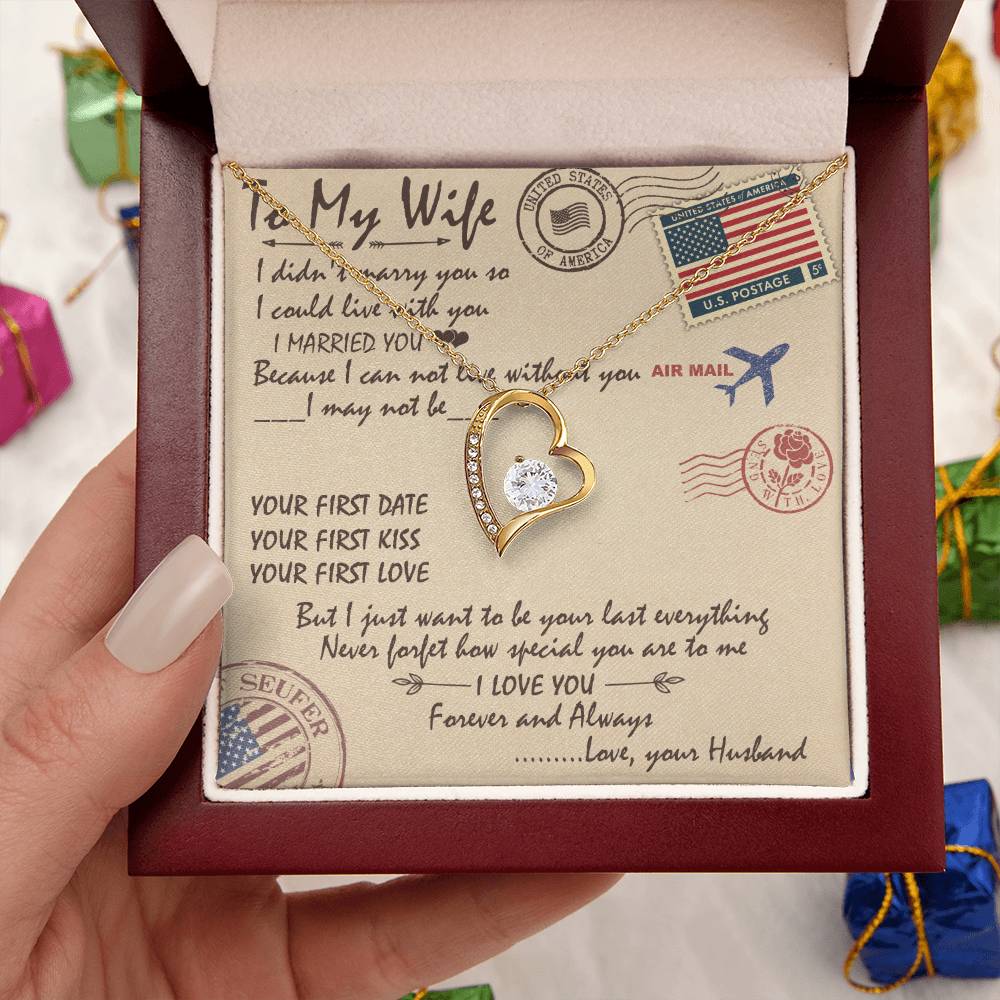 To My Wife
UNITED STATES
OF AMERICA
UNITED STATES of AMERICA
5¢
U.S. POSTAGE
I didn't marry you so
I could live with you
I MARRIED YOU
Because I can not live without you
AIR MAIL
___I may not be___
SEND WITH LOVE
YOUR FIRST DATE
YOUR FIRST KISS
YOUR FIRST LOVE
But I just want to be your last everything
Never forfet how special you are to me
I LOVE YOU
Forever and Always
.........Love, your Husband
SEUFER